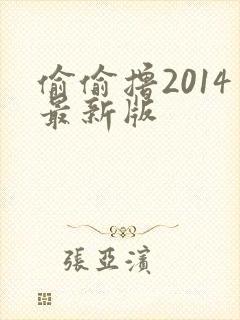 偷偷撸2014
最新版
張亞濱